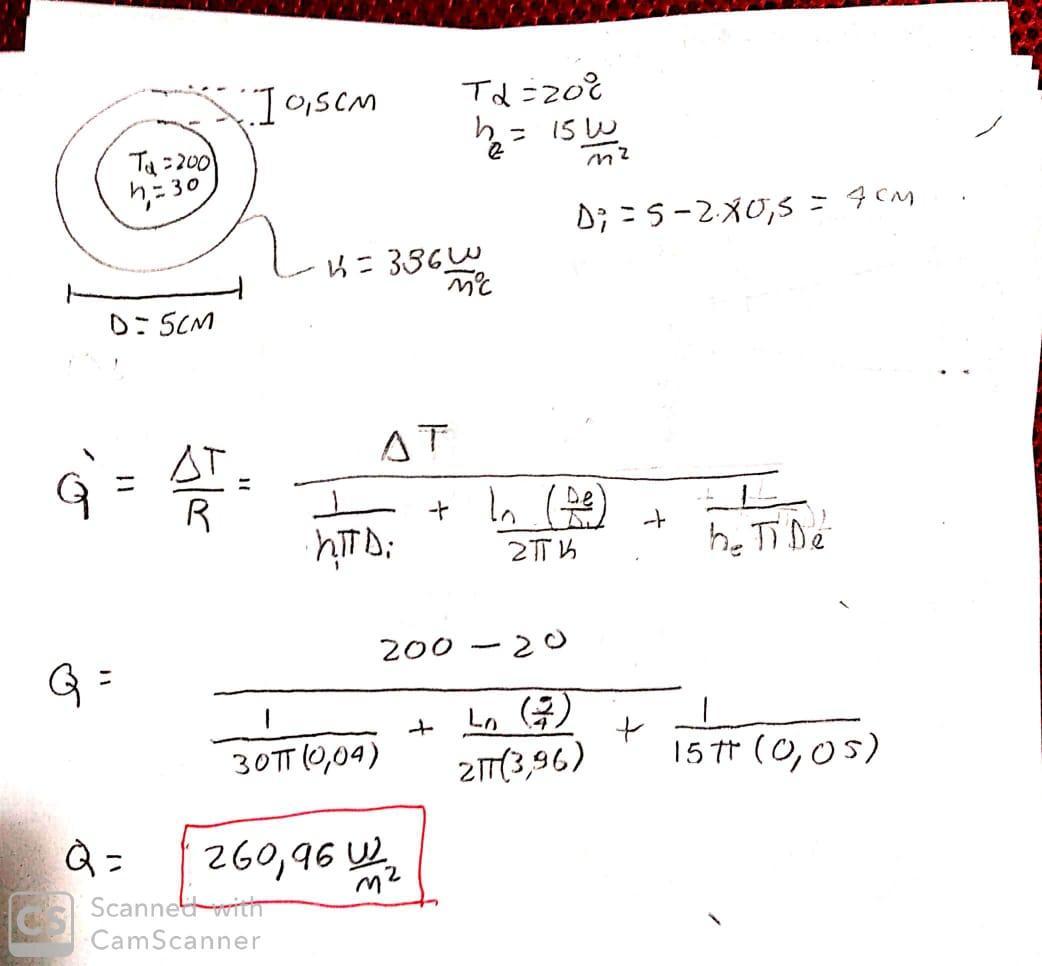 0,5CM
Tα = 20°C
hₑ = 15 W/m²
Tα = 200
hᵢ = 30
Dᵢ = 5 - 2·x0,5 = 4 CM
K = 396 W/m°C
D = 5CM
Q̇ = ΔT/R = ΔT / (1/(hᵢπDᵢ) + ln(De/Dᵢ)/(2πK) + 1/(hₑπDe))
Q = (200 - 20) / (1/(30π(0,04)) + Ln(5/4)/(2π(3,96)) + 1/(15π(0,05)))
Q = 260,96 W/m²
CS Scanned with
CamScanner